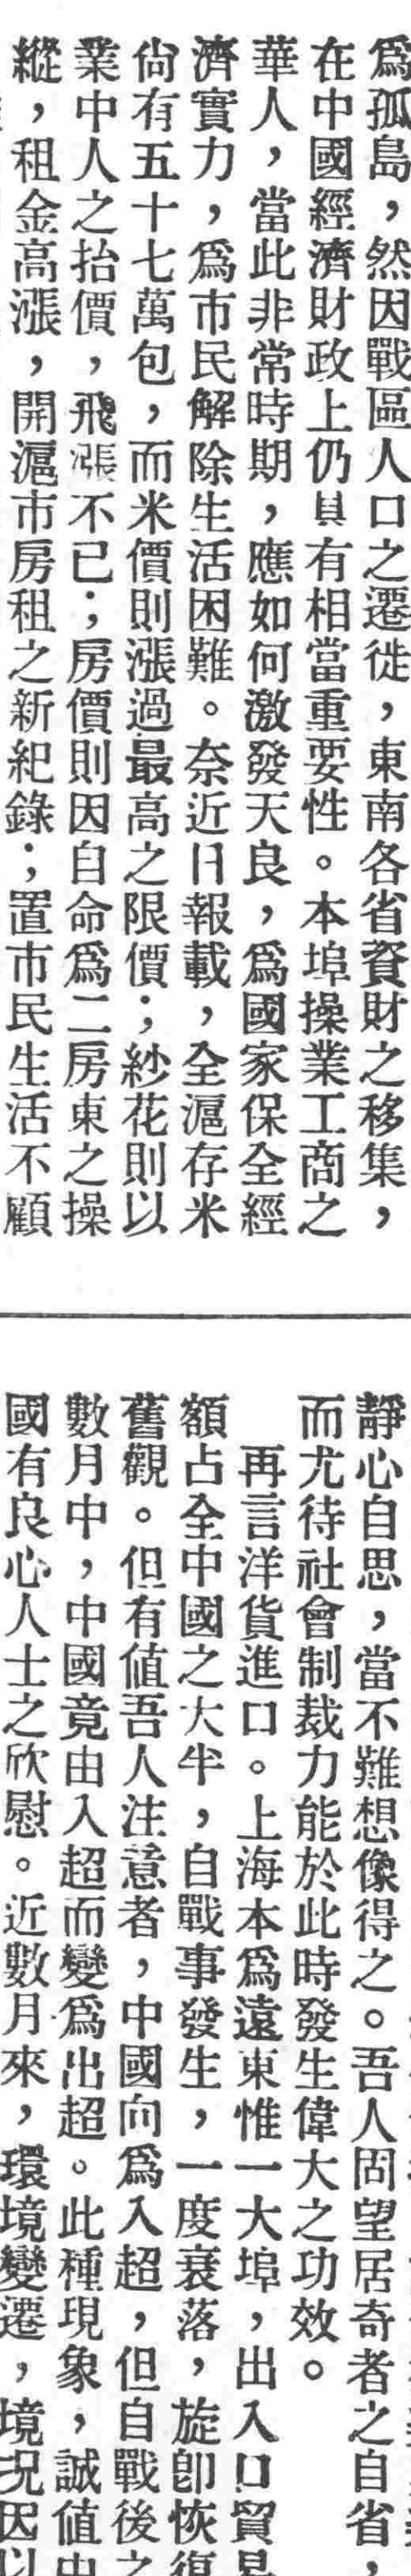 爲孤島，然因戰區人口之遷徙，東南各省資財之移集，
在中國經濟財政上仍具有相當重要性。本埠操業工商之
華人，當此非常時期，應如何激發天良，爲國家保全經
濟實力，爲市民解除生活困難。奈近日報載，全滬存米
尙有五十七萬包，而米價則漲過最高之限價；紗花則以
業中人之抬價，飛漲不已；房價則因自命爲二房東之操
縱，租金高漲，開滬市房租之新紀錄；置市民生活不顧
靜心自思，當不難想像得之。吾人固望居奇者之自省，
而尤待社會制裁力能於此時發生偉大之功效。
再言洋貨進口。上海本爲遠東惟一大埠，出入口貿易
額占全中國之大半，自戰事發生，一度衰落，旋卽恢復
舊觀。但有値吾人注意者，中國向爲入超，但自戰後之
數月中，中國竟由入超而變爲出超。此種現象，誠値
國有良心人士之欣慰。近數月來，環境變遷，境况因以